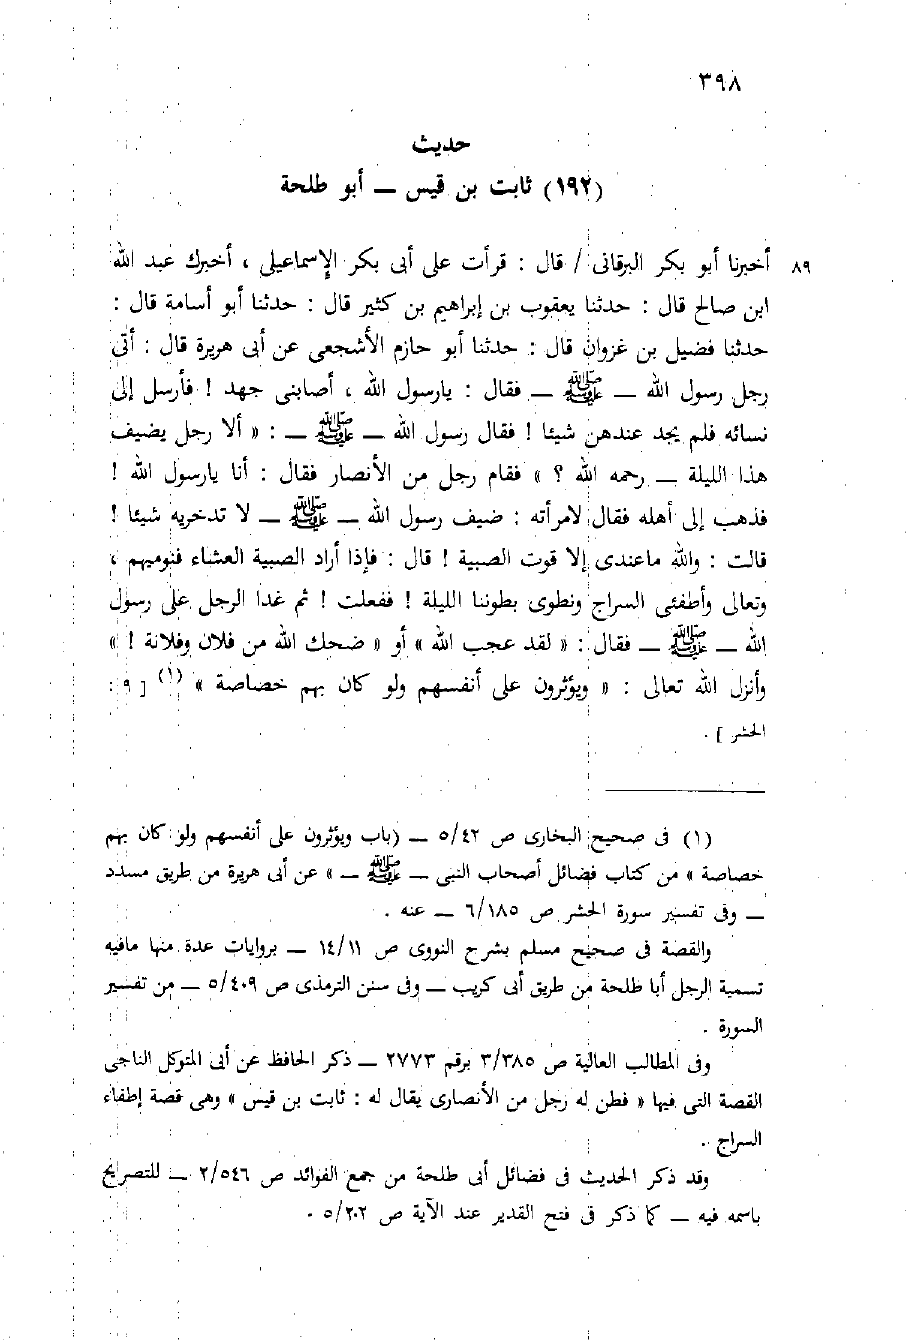 ٣٩٨
حديث
(١٩٢) ثابت بن قيس — أبو طلحة
٨٩ أخبرنا أبو بكر البرقانى / قال : قرأت على أبى بكر الإسماعيلى ، أخبرك عبد الله
ابن صالح قال : حدثنا يعقوب بن إبراهيم بن كثير قال : حدثنا أبو أسامة قال :
حدثنا فضيل بن غزوان قال : حدثنا أبو حازم الأشجعى عن أبى هريرة قال : أتى
رجل رسول الله — ﷺ — فقال : يارسول الله ، أصابنى جهد ! فأرسل إلى
نسائه فلم يجد عندهن شيئا ! فقال رسول الله — ﷺ — : « ألا رجل يضيف
هذا الليلة — رحمه الله ؟ » فقام رجل من الأنصار فقال : أنا يارسول الله !
فذهب إلى أهله فقال لامرأته : ضيف رسول الله — ﷺ — لا تدخريه شيئا !
قالت : والله ماعندى إلا قوت الصبية ! قال : فإذا أراد الصبية العشاء فنوميهم ،
وتعالى وأطفئى السراج ونطوى بطوننا الليلة ! ففعلت ! ثم غدا الرجل على رسول
الله — ﷺ — فقال : « لقد عجب الله » أو « ضحك الله من فلان وفلانة ! »
وأنزل الله تعالى : « ويؤثرون على أنفسهم ولو كان بهم خصاصة » (١) [ ٩ :
الحشر ] .
(١) فى صحيح البخارى ص ٥/٤٢ — (باب ويؤثرون على أنفسهم ولو كان بهم
خصاصة » من كتاب فضائل أصحاب النبى — ﷺ — » عن أبى هريرة من طريق مسدد
— وفى تفسير سورة الحشر ص ٦/١٨٥ — عنه .
والقصة فى صحيح مسلم بشرح النووى ص ١٤/١١ — بروايات عدة منها مافيه
تسمية الرجل أبا طلحة من طريق أبى كريب — وفى سنن الترمذى ص ٥/٤٠٩ — من تفسير
السورة .
وفى المطالب العالية ص ٣/٣٨٥ برقم ٢٧٧٣ — ذكر الحافظ عن أبى المتوكل الناجى
القصة التى فيها « فطن له رجل من الأنصارى يقال له : ثابت بن قيس » وهى قصة إطفاء
السراج .
وقد ذكر الحديث فى فضائل أبى طلحة من جمع الفوائد ص ٢/٥٤٦ — للتصرايح
باسمه فيه — كما ذكر فى فتح القدير عند الآية ص ٥/٢٠٢ .